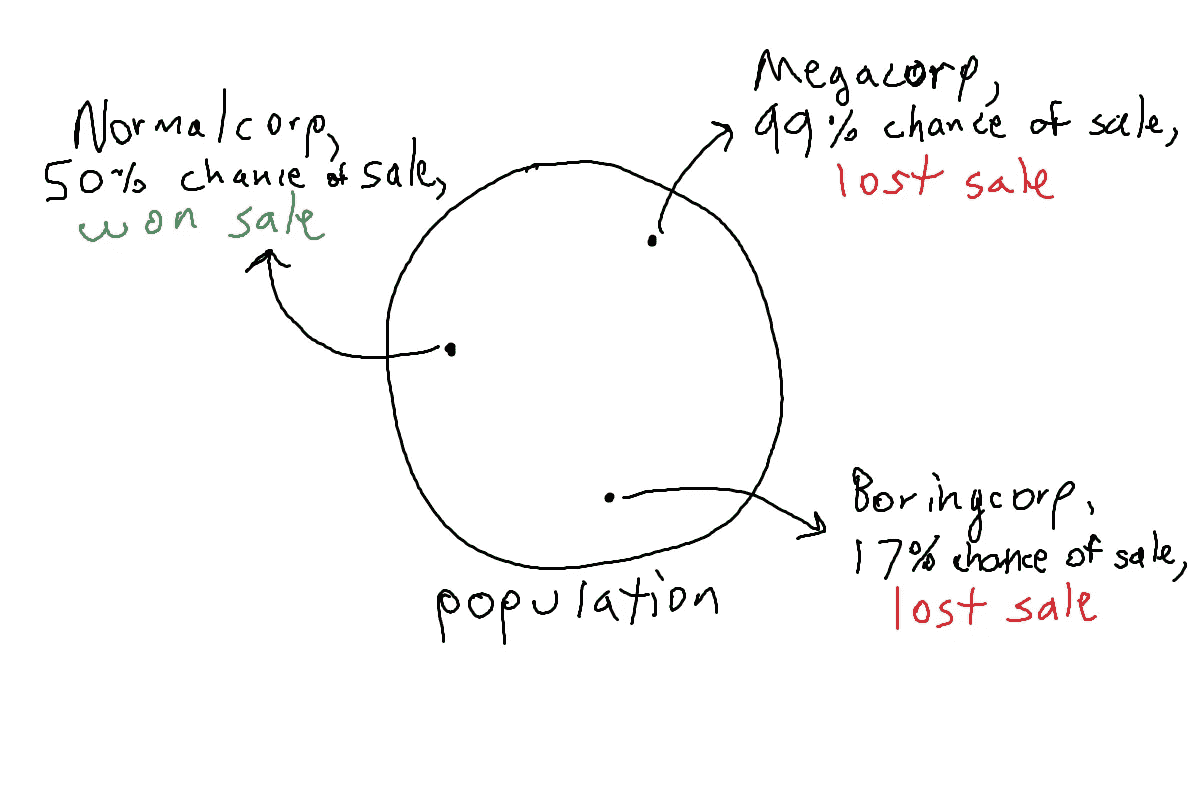 Normalcorp,
50% chance of sale,
won sale
Megacorp,
99% chance of sale,
lost sale
Boringcorp,
17% chance of sale,
lost sale
population